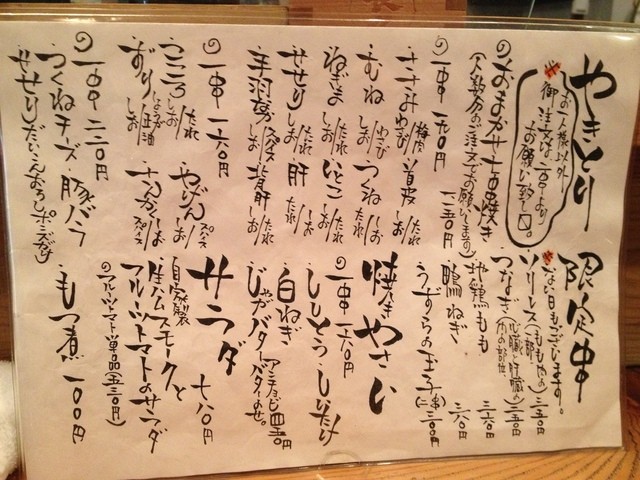 やきとり
お一人様以外
御注文は、二本より
お願い致します。
おまかせ五品焼き
(人数分のご注文でお願いします) 一二五〇円
一串 一九〇円
ささみ わさび/梅肉
首皮 しお/たれ
むね わさび/しお
つくね しお/たれ
ねぎま しお/たれ
いとこ しお/たれ
せせり しお/たれ
肝 しお/たれ
手羽先 しお/スパイス
背肝 しお/たれ
一串 一六〇円
こころ しお/たれ
やげん しお/スパイス
ずり しお/しょうが正油
さんかく しお/スパイス
一串 二二〇円
つくねチーズ
豚バラ
せせり だいこんおろしポン酢がけ
限定串
ない日もございます。
ソリレス(ももやの一部) 二五〇円
つなぎ(心臓と肝臓の間の部位) 二五〇円
地鶏もも 三五〇円
鴨ねぎ 三八〇円
うずらの玉子(一串二ヶ) 二〇〇円
焼きやさい
一串 一六〇円
ししとう
しいたけ
白ねぎ
じゃがバター アンチョビバターのせ。 四五〇円
サラダ 七八〇円
自家製
生ハムスモークと
フルーツトマトのサラダ
(フルーツトマト単品 五三〇円)
もつ煮 一〇〇円